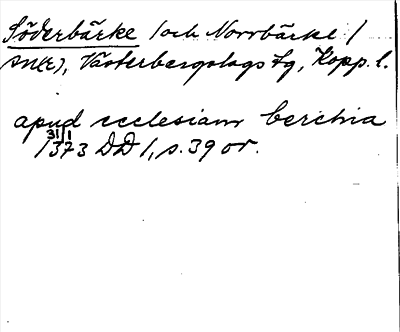 Söderbärke (och Norrbärke)
sn(r), Västerbergslags tg, Kopp. l.
apud ecclesiam berchia
31/1
1373 DD 1, s. 39 or.